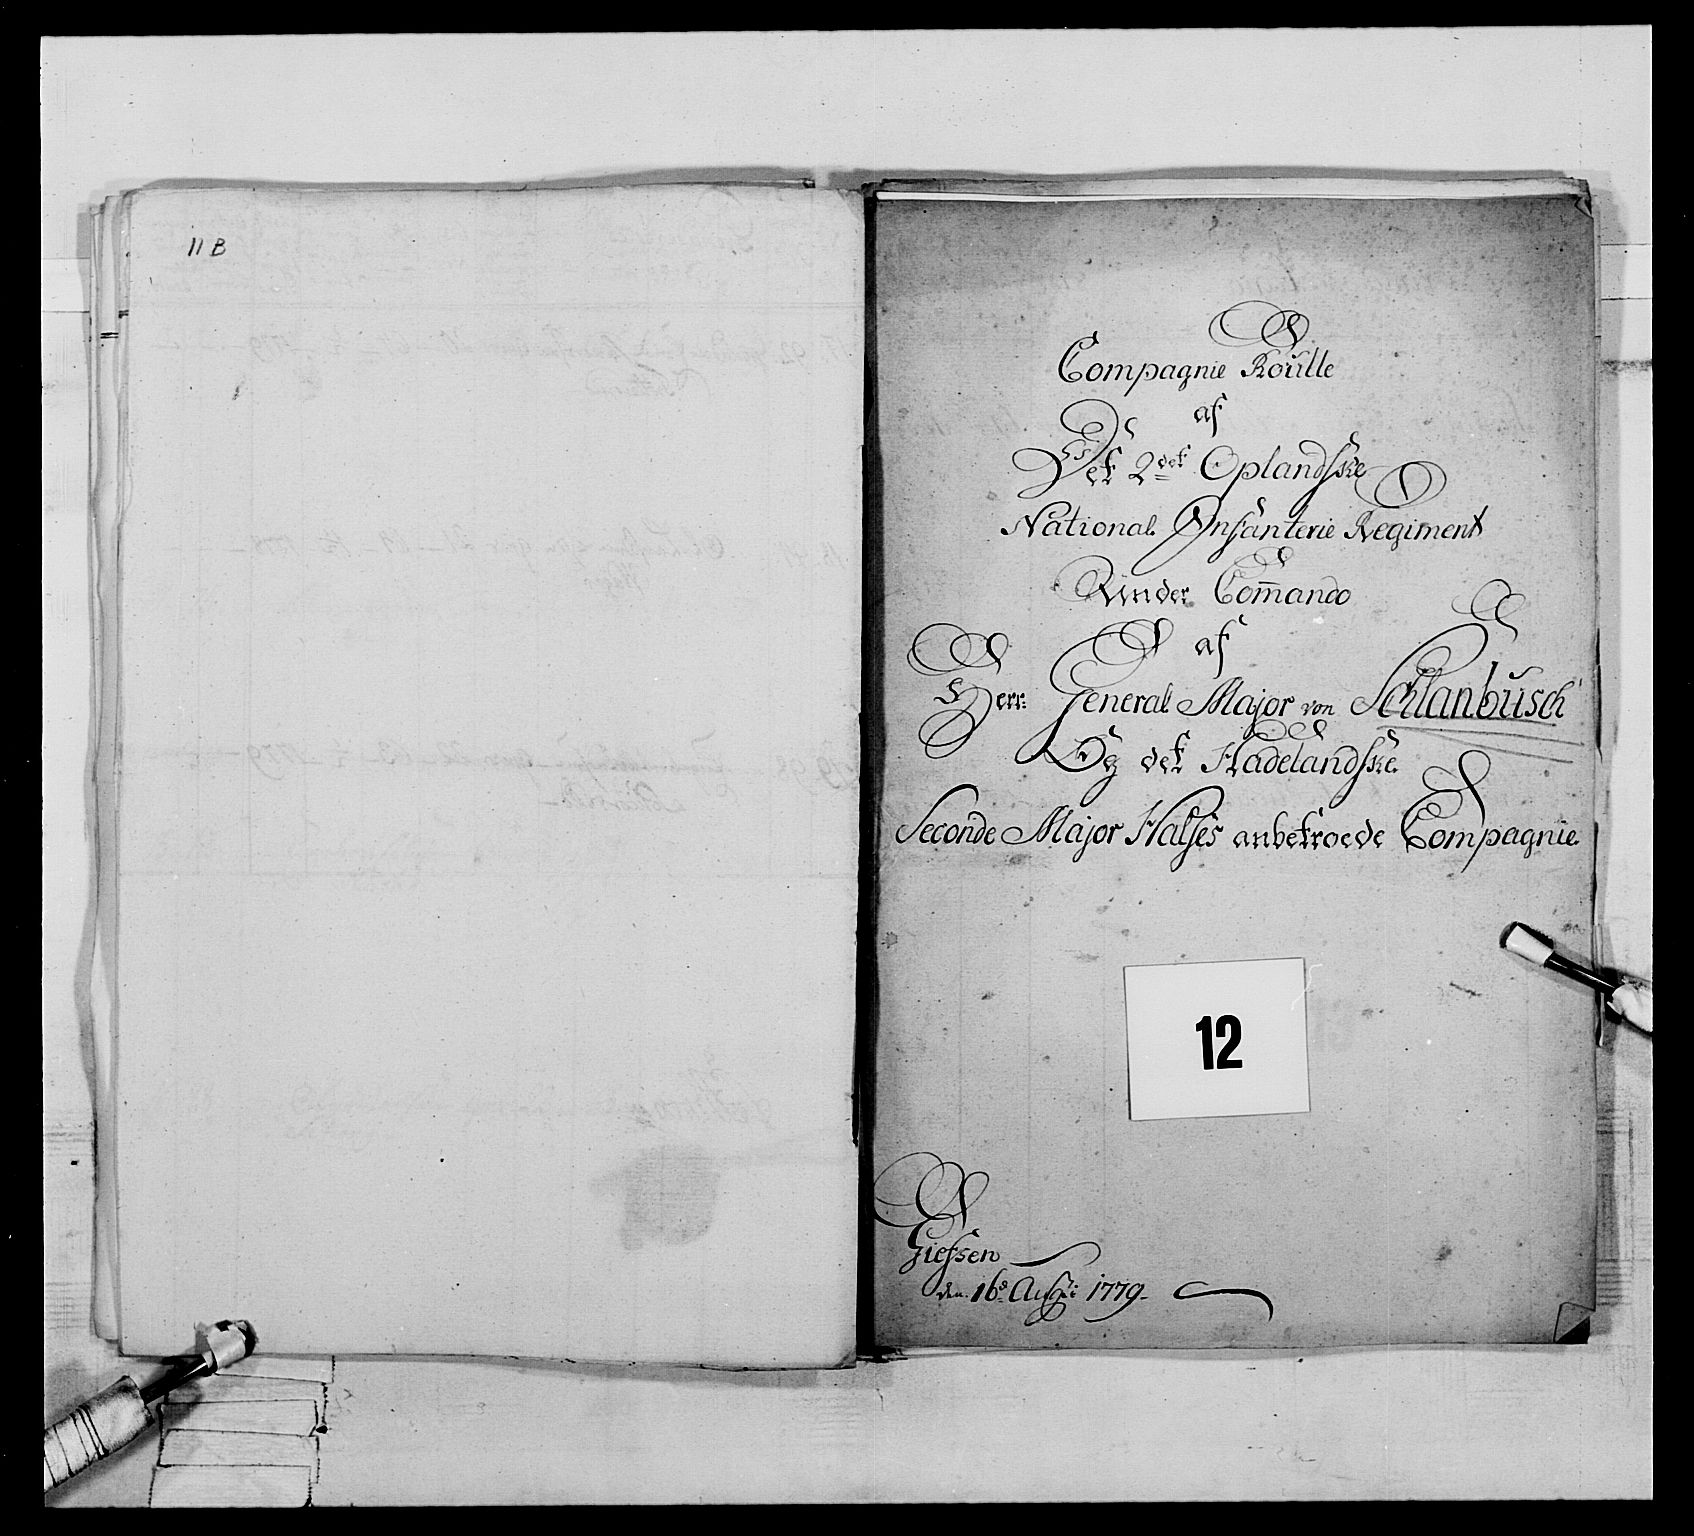 11 B
Compagnie Roulle
af
Det 2det Oplandske
National Infanterie Regiment
Under Com̄ando
af
Herr: General Major von Schlanbusch
Og det Hadelandske
Seconde Major Halses anbetroede Compagnie
12
Giefsen
den 16d Augti 1779.